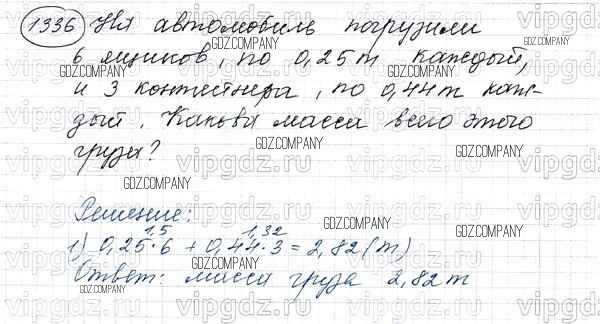 1336 На автомобиль погрузили
6 ящиков, по 0,25 т каждый,
и 3 контейнера, по 0,44 т каж-
дый. Какова масса всего этого
груза?
Решение:
1,5 1,32
1) 0,25·6 + 0,44·3 = 2,82 (т)
Ответ: масса груза 2,82 т
GDZ.COMPANY
vipgdz.ru